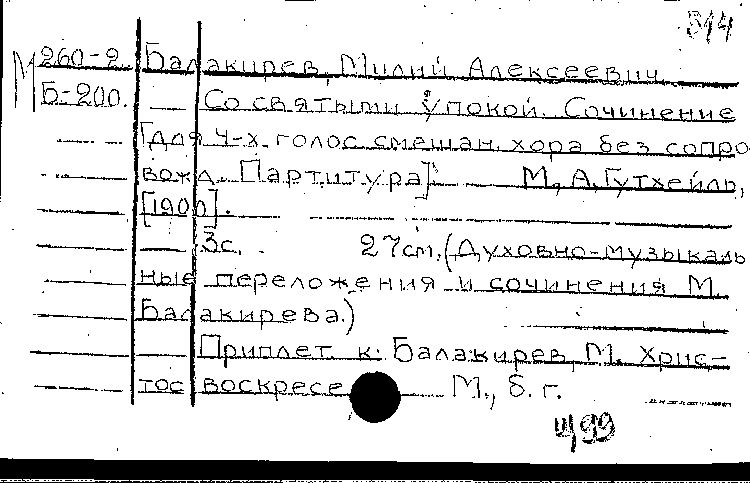 314
М 260-2 Балакирев, Милий Алексеевич.
Б-200. Со святыми упокой. Сочинение
[для 4-х голос смешан. хора без сопро
вожд. Партитура]. М., А. Гутхейль,
[1900].
3с. 27см. (Духовно-музыкаль
ные переложения и сочинения М.
Балакирева.)
Приплет. к: Балакирев, М. Хрис-
тос воскресе М., б. г.
щ99